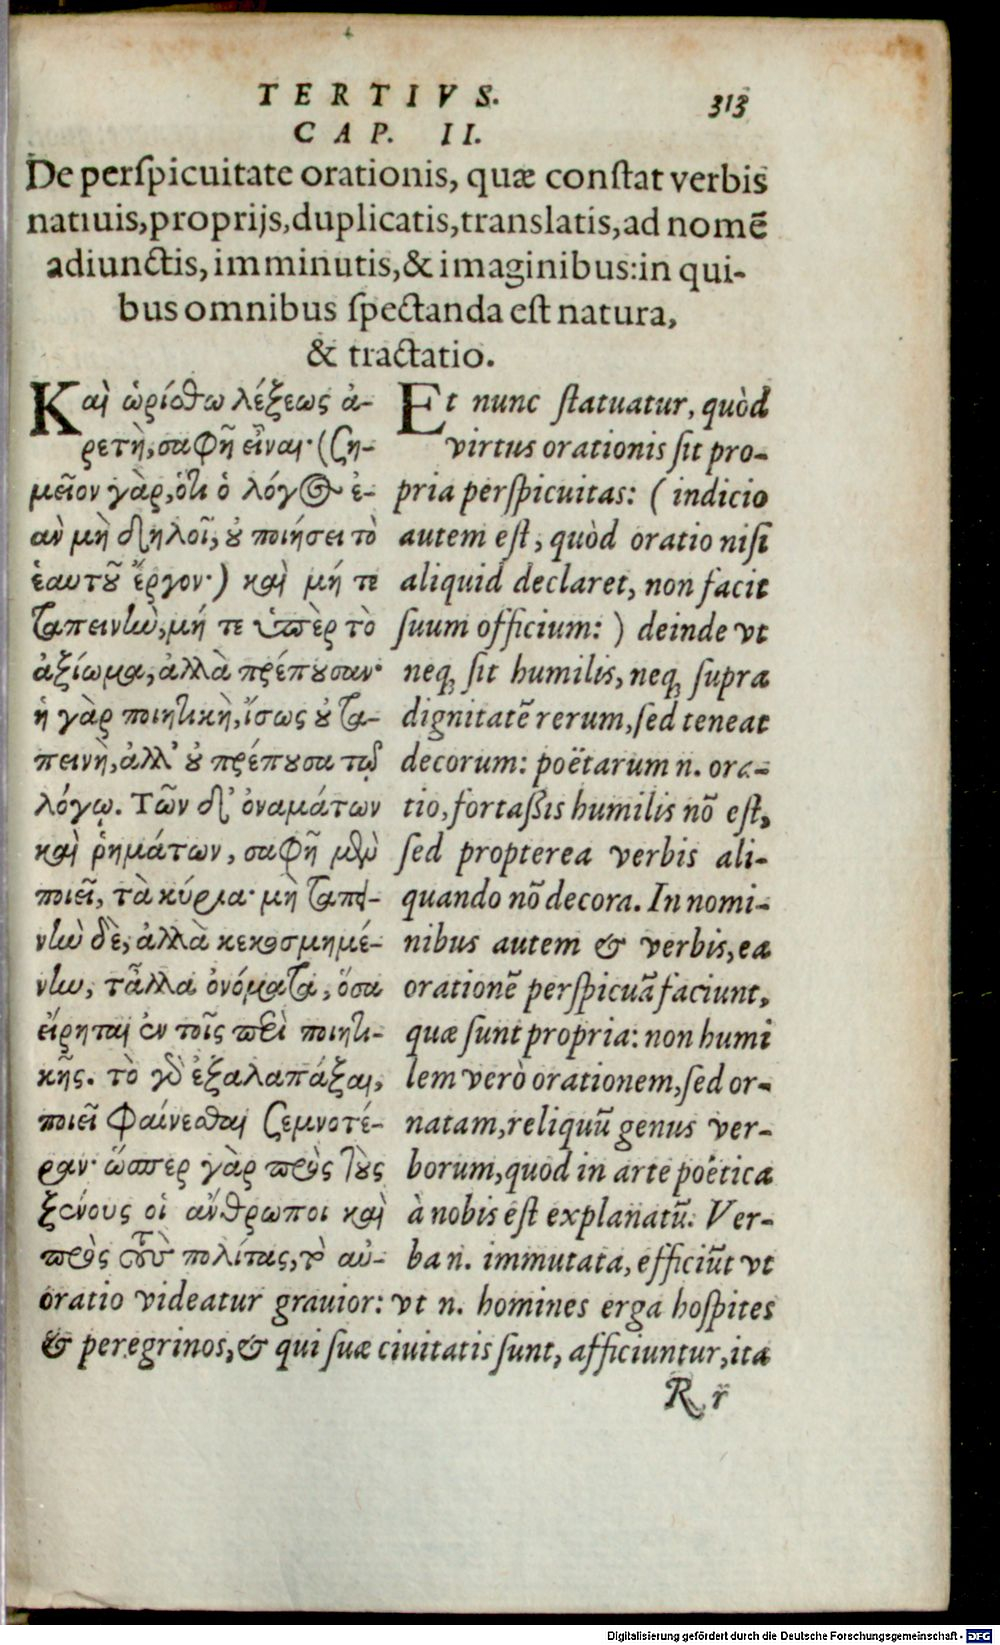 TERTIVS. 313
CAP. II.
De perſpicuitate orationis, quæ conſtat verbis
natiuis, proprijs, duplicatis, translatis, ad nomē
adiunctis, imminutis, & imaginibus: in qui-
bus omnibus ſpectanda eſt natura,
& tractatio.
Καὶ ὡρίσθω λέξεως ἀ-
ρετὴ, σαφῆ εἶναι· (ση-
μεῖον γὰρ, ὅτι ὁ λόγος ἐ-
ὰν μὴ δηλοῖ, οὐ ποιήσει τὸ
ἑαυτοῦ ἔργον·) καὶ μή τε
ταπεινὴν, μή τε ὑπὲρ τὸ
ἀξίωμα, ἀλλὰ πρέπουσαν·
ἡ γὰρ ποιητικὴ, ἴσως οὐ τα-
πεινὴ, ἀλλ' οὐ πρέπουσα τῷ
λόγῳ. Τῶν δ' ὀναμάτων
καὶ ῥημάτων, σαφῆ μὲν
ποιεῖ, τὰ κύρια· μὴ ταπει-
νὴν δὲ, ἀλλὰ κεκοσμημέ-
νην, τἆλλα ὀνόματα, ὅσα
εἴρηται ἐν τοῖς περὶ ποιητι-
κῆς. τὸ γὰρ ἐξαλαπάξαι,
ποιεῖ φαίνεσθαι σεμνοτέ-
ραν· ὥσπερ γὰρ πρὸς τοὺς
ξένους οἱ ἄνθρωποι καὶ
πρὸς τοὺς πολίτας, τὸ αὐ-
Et nunc ſtatuatur, quòd
virtus orationis ſit pro-
pria perſpicuitas: (indicio
autem eſt, quòd oratio niſi
aliquid declaret, non facit
ſuum officium:) deinde vt
neq; ſit humilis, neq; ſupra
dignitatē rerum, ſed teneat
decorum: poëtarum n. ora-
tio, fortaßis humilis nō eſt,
ſed propterea verbis ali-
quando nō decora. In nomi-
nibus autem & verbis, ea
orationē perſpicuā faciunt,
quæ ſunt propria: non humi
lem verò orationem, ſed or-
natam, reliquū genus ver-
borum, quod in arte poëtica
à nobis eſt explanatū. Ver-
ba n. immutata, efficiūt vt
oratio videatur grauior: vt n. homines erga hoſpites
& peregrinos, & qui ſuæ ciuitatis ſunt, afficiuntur, ita
R r
Digitalisierung gefördert durch die Deutsche Forschungsgemeinschaft - DFG